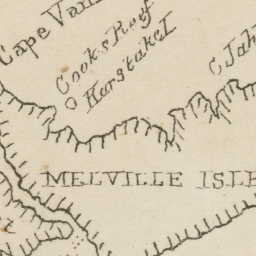 Cape Van
Cooks Reef
Hargitake I
C. Jah
MELVILLE ISLE